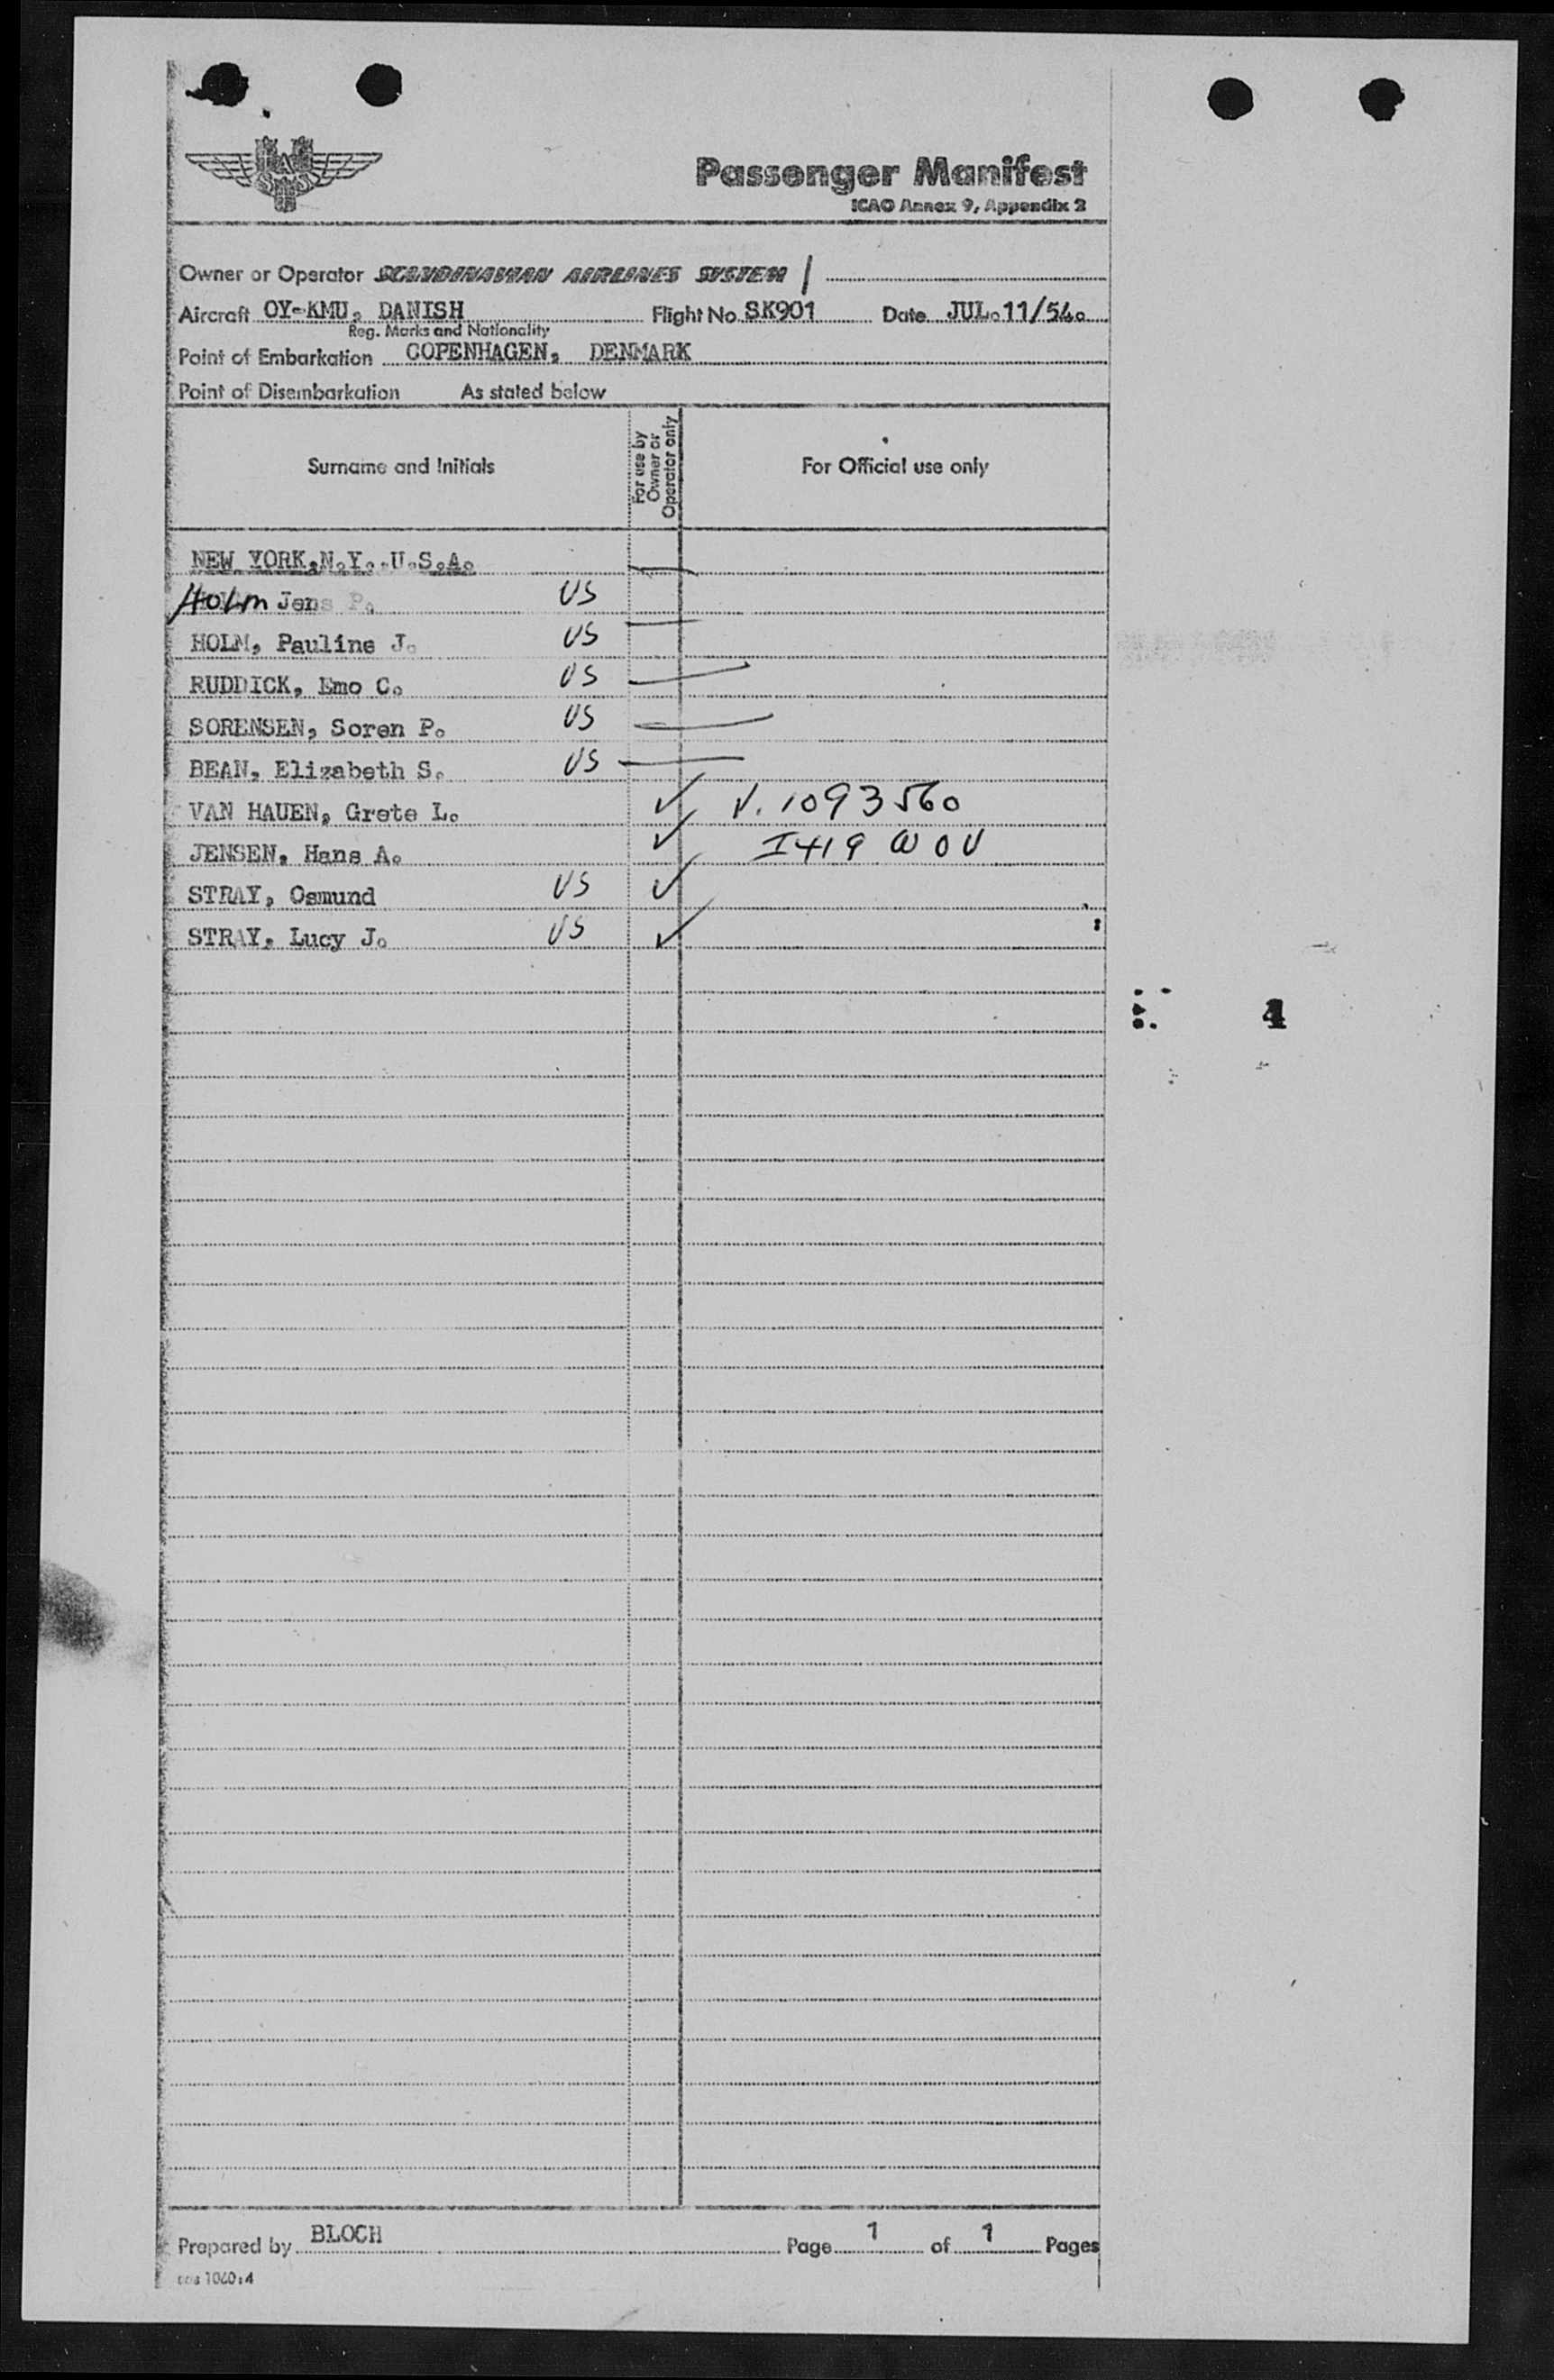 SAS
Passenger Manifest
ICAO Annex 9, Appendix 2
Owner or Operator SCANDINAVIAN AIRLINES SYSTEM /
Aircraft OY-KMU, DANISH Flight No SK901 Date JUL.11/54.
Reg. Marks and Nationality
Point of Embarkation COPENHAGEN, DENMARK
Point of Disembarkation As stated below
Surname and Initials For use by Owner or Operator only For Official use only
NEW YORK,N.Y.,U.S.A.
Holm Jens P. US
HOLM, Pauline J. US
RUDDICK, Emo C. US
SORENSEN, Soren P. US
BEAN, Elizabeth S. US
VAN HAUEN, Grete L. ✓ V. 1093560
JENSEN, Hans A. ✓ I 419 WOV
STRAY, Osmund US ✓
STRAY, Lucy J. US ✓
4
Prepared by BLOCH Page 1 of 1 Pages
1060:4